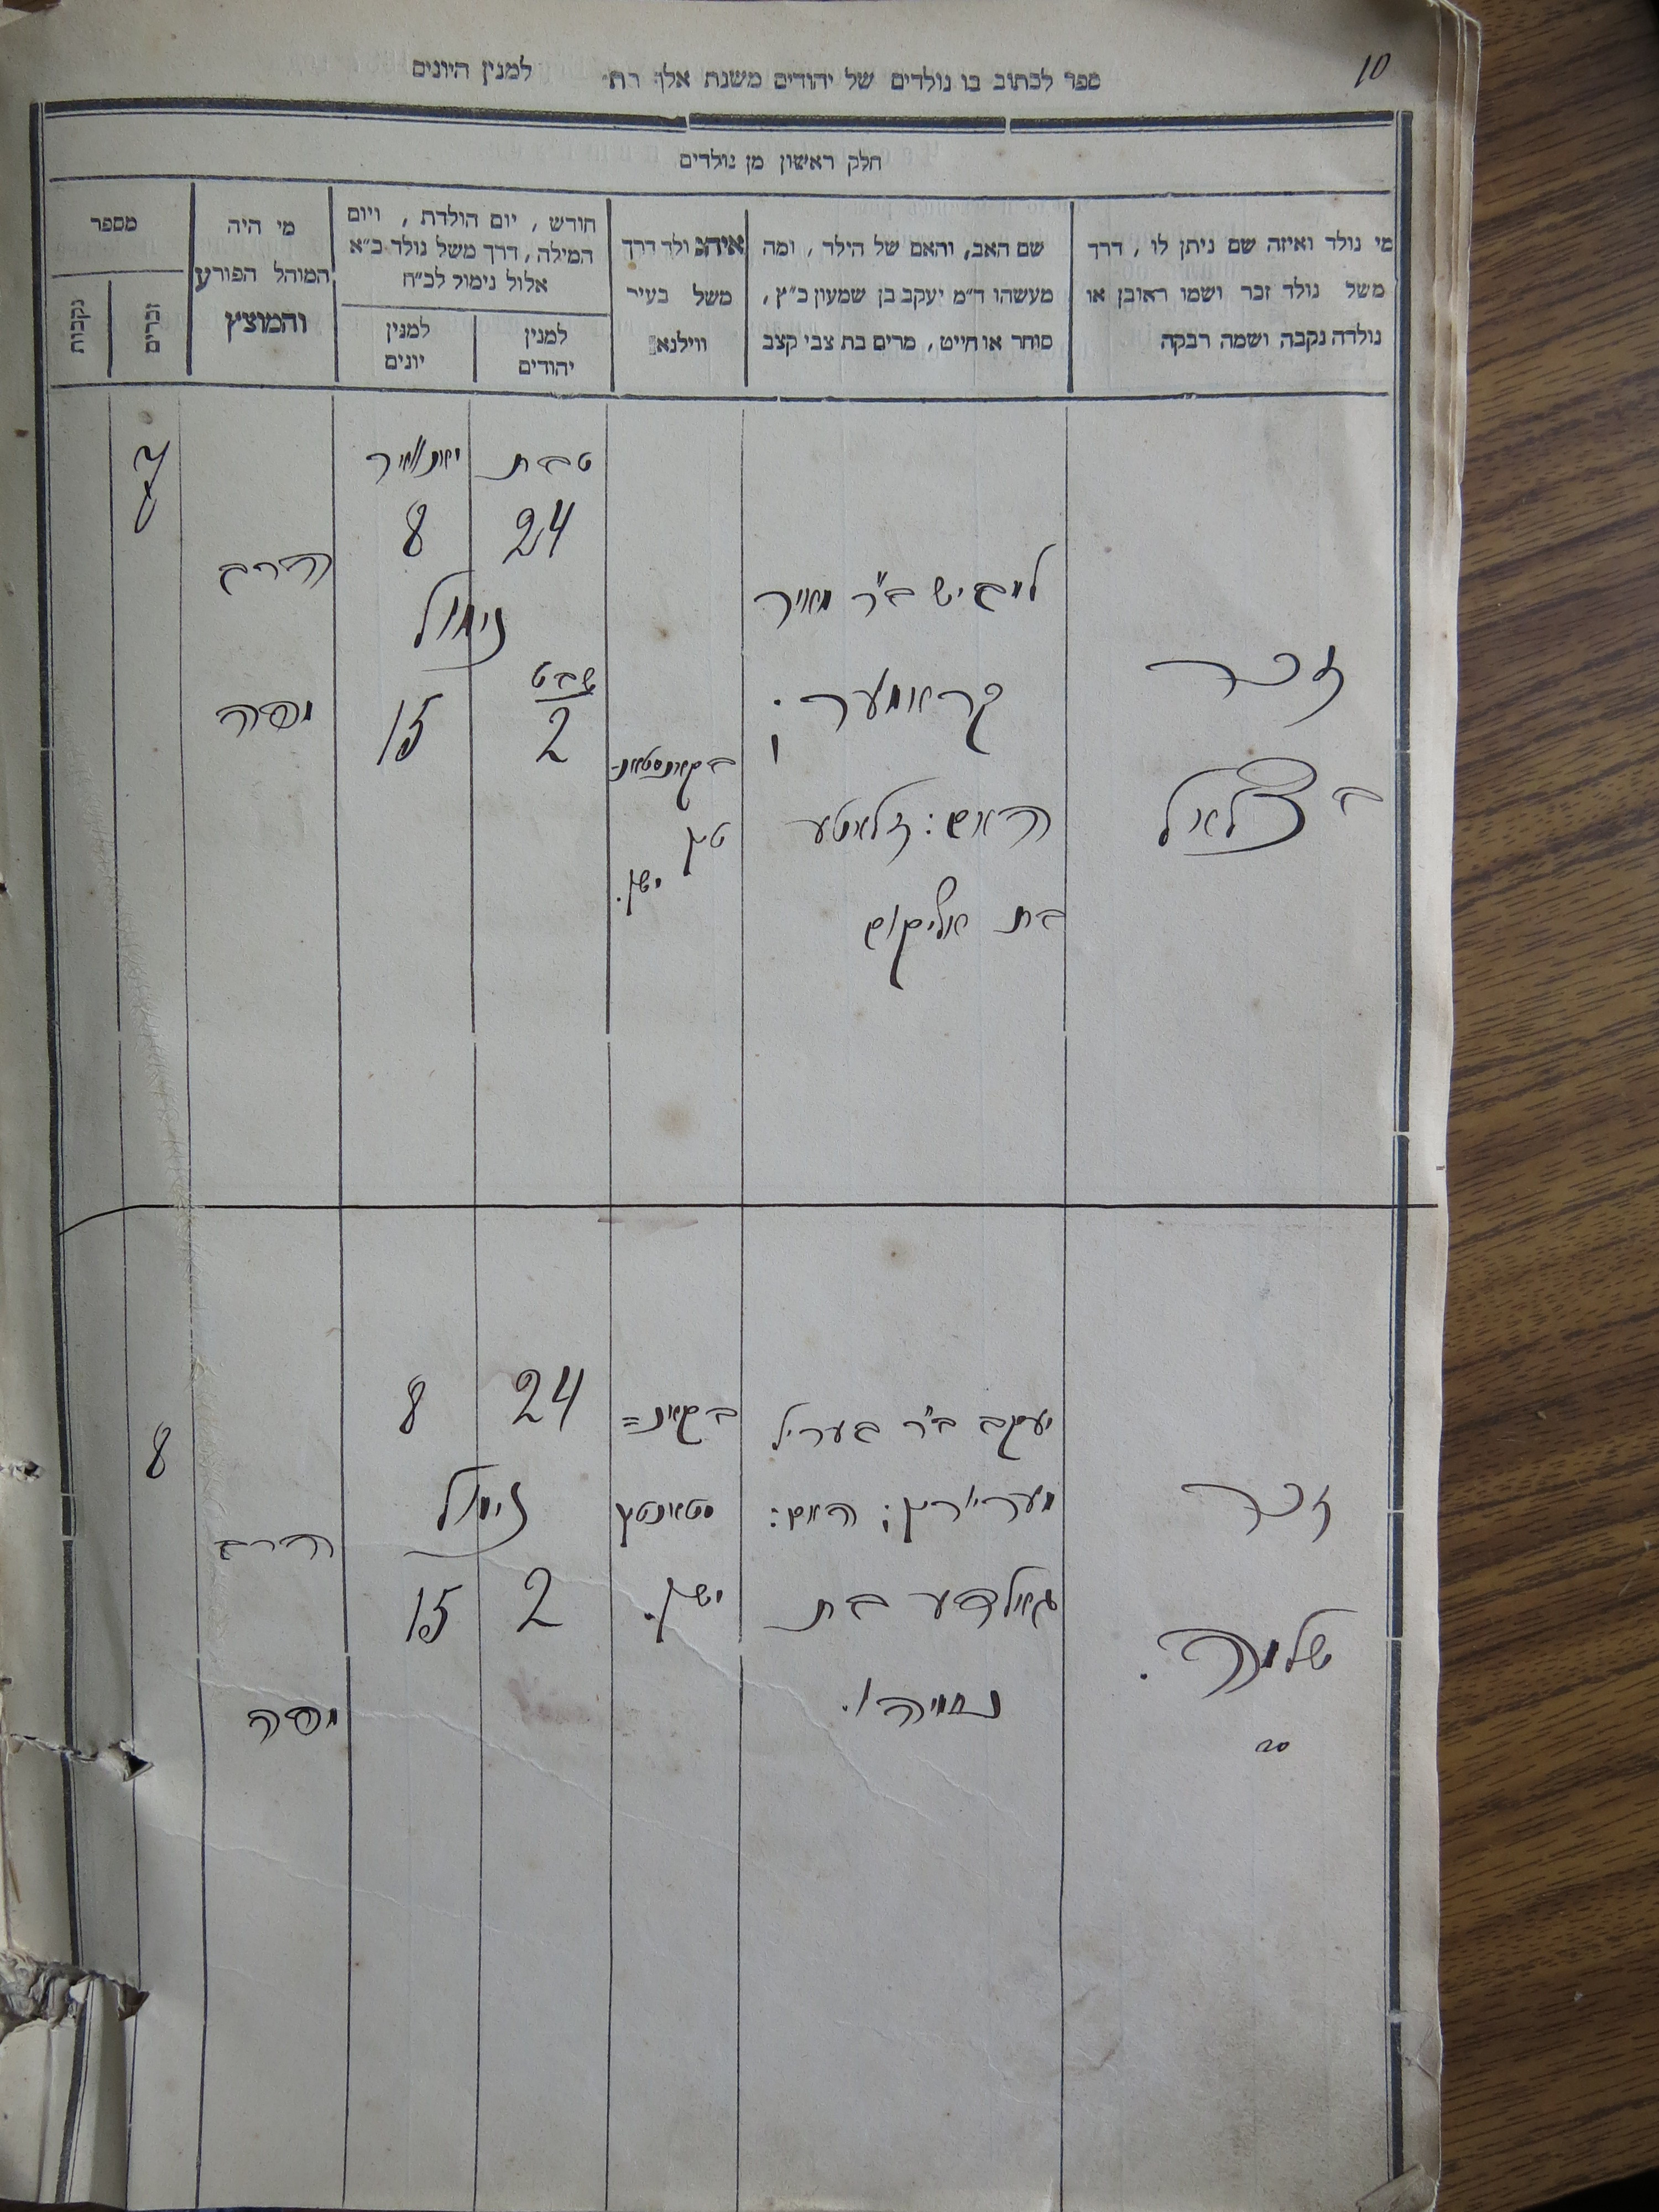 10
ספר לכתוב בו נולדים של יהודים משנת אלף רת׳ למנין היונים
חלק ראשון מן נולדים
מי נולד ואיזה שם ניתן לו, דרך
משל נולד זכר ושמו ראובן או
נולדה נקבה ושמה רבקה
שם האב, והאם של הילד, ומה
מעשהו ד״מ יעקב בן שמעון כ״ץ,
סוחר או חייט, מרים בת צבי קצב
איהנ ולד דרך
משל בעיר
ווילנא
חודש, יום הולדת, ויום
המילה, דרך משל נולד כ״א
אלול נימול לכ״ח
למנין
יהודים
למנין
יונים
מי היה
המוהל הפורע
והמוצץ
מספר
זכרים
נקבות
זכר
בצלאל
לייביש ב״ר מאיר
קראמער;
האם: זלאטע
בת אליקום
בקאנסטאנ-
טין
ישן.
טבת
24
יאנואר
8
נימול
שבט
2
15
הרב
משה
7
זכר
שלמה.
יעקב ב״ר בעריל
האם:
גאלדע בת
נחמיהו.
בקאנ=
סטאנטין
ישן.
24
8
נימול
2
15
הרב
משה
8